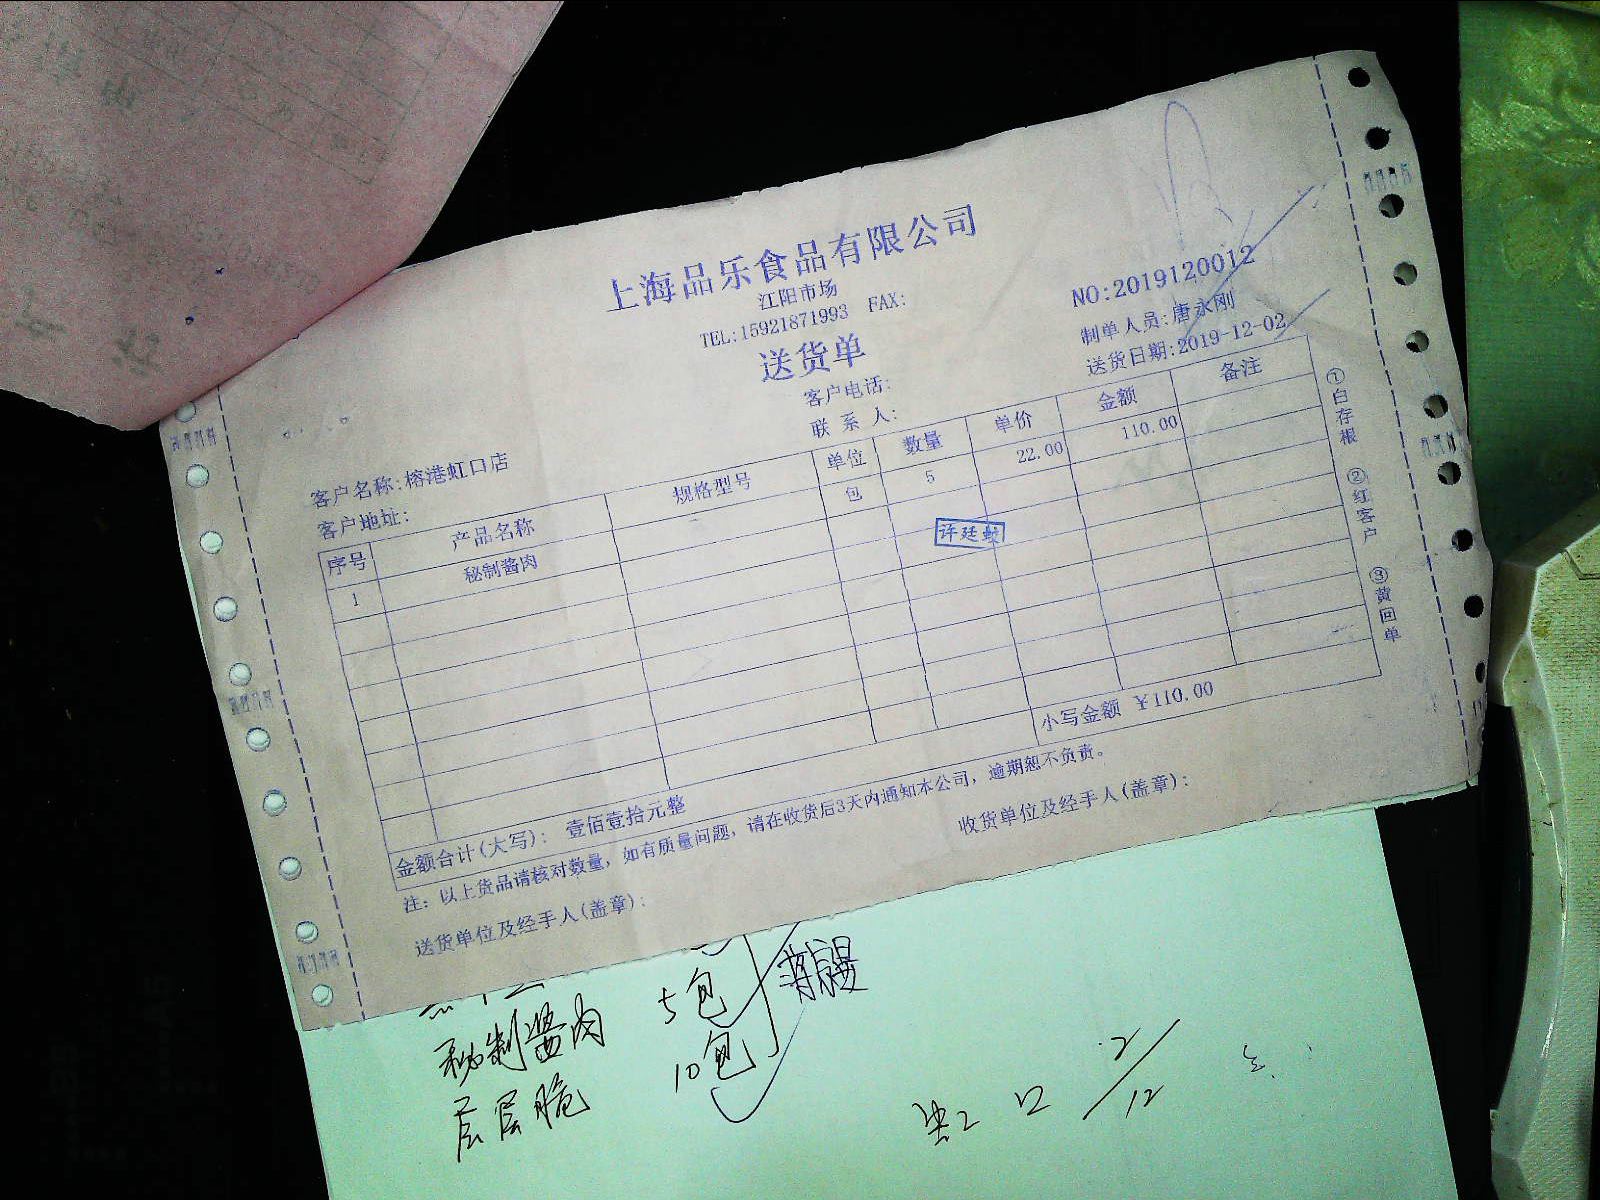 上海品乐食品有限公司
江阳市场
TEL:15921871993 FAX:
NO:2019120012
送货单
制单人员:唐永刚
客户电话:
送货日期:2019-12-02
联系人:
客户名称:榕港虹口店
客户地址:
序号 产品名称 规格型号 单位 数量 单价 金额 备注
1 秘制酱肉 包 5 22.00 110.00
许廷
①白存根 ②红客户 ③黄回单
小写金额 ¥110.00
金额合计(大写): 壹佰壹拾元整
注: 以上货品请核对数量, 如有质量问题, 请在收货后3天内通知本公司, 逾期恕不负责。
送货单位及经手人(盖章): 收货单位及经手人(盖章):
秘制酱肉 5包
层层脆 10包
虹口 2/12